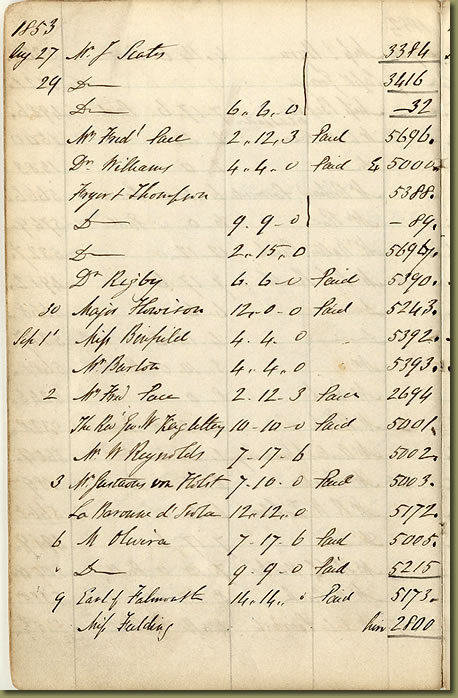 1853
Aug 27 Mr J Scates 3384
29 Do 3416
Do 6.. 6.. 0 - 32
Mr Fredk Pace 2.. 12.. 3 Paid 5696.
Dr Williams 4.. 4.. 0 Paid & 5000.
Fryer & Thompson 5388.
Do 9.. 9 - 0 - 89.
Do 2.. 15.. 0 5696.
Dr Rigby 6.. 6 - 0 Paid 5390.
30 Major Howison 12.. 0 - 0 Paid 5243.
Sep 1st Miss Binfield 4.. 4.. 0 5392.
Mr Barton 4.. 4.. 0 5393.
2 Mr Fred Pace 2 - 12 - 3 Paid 2694
The Revd 10 - 10 - 0 Paid 5001.
Mr W Reynolds 7 - 17 - 6 5002.
3 Mr Gustavus von Holst 7 - 10 - 0 Paid 5003.
La Baronne d' 12.. 12.. 0 5172.
6 M Oliveira 7 - 17 - 6 Paid 5005.
" Do 9.. 9.. 0 Paid 5215
9 Earl of Falmouth 14.. 14.. 0 Paid 5173.
Miss Fielding hire 2800